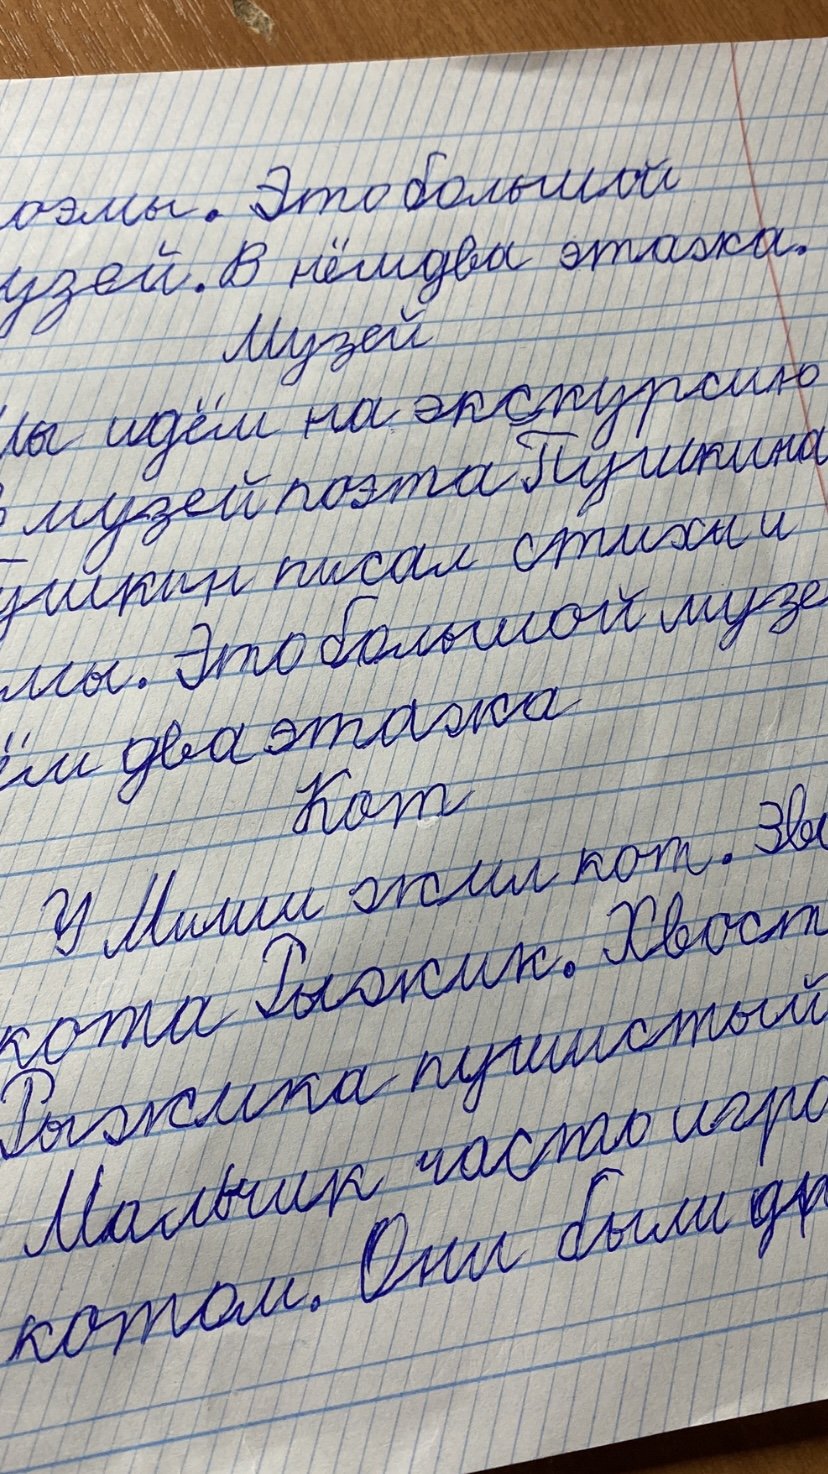 оэмы. Это большой
узей. В нём два этажа.
Музей
ы идём на экскурсию
в музей поэта Пушкина
ушкин писал стихи и
мы. Это большой музе
ём два этажа
Кот
У Миши жил кот. Зва
кота Рыжик. Хвост
Рыжика пушистый
Мальчик часто игра
котом. Они были др